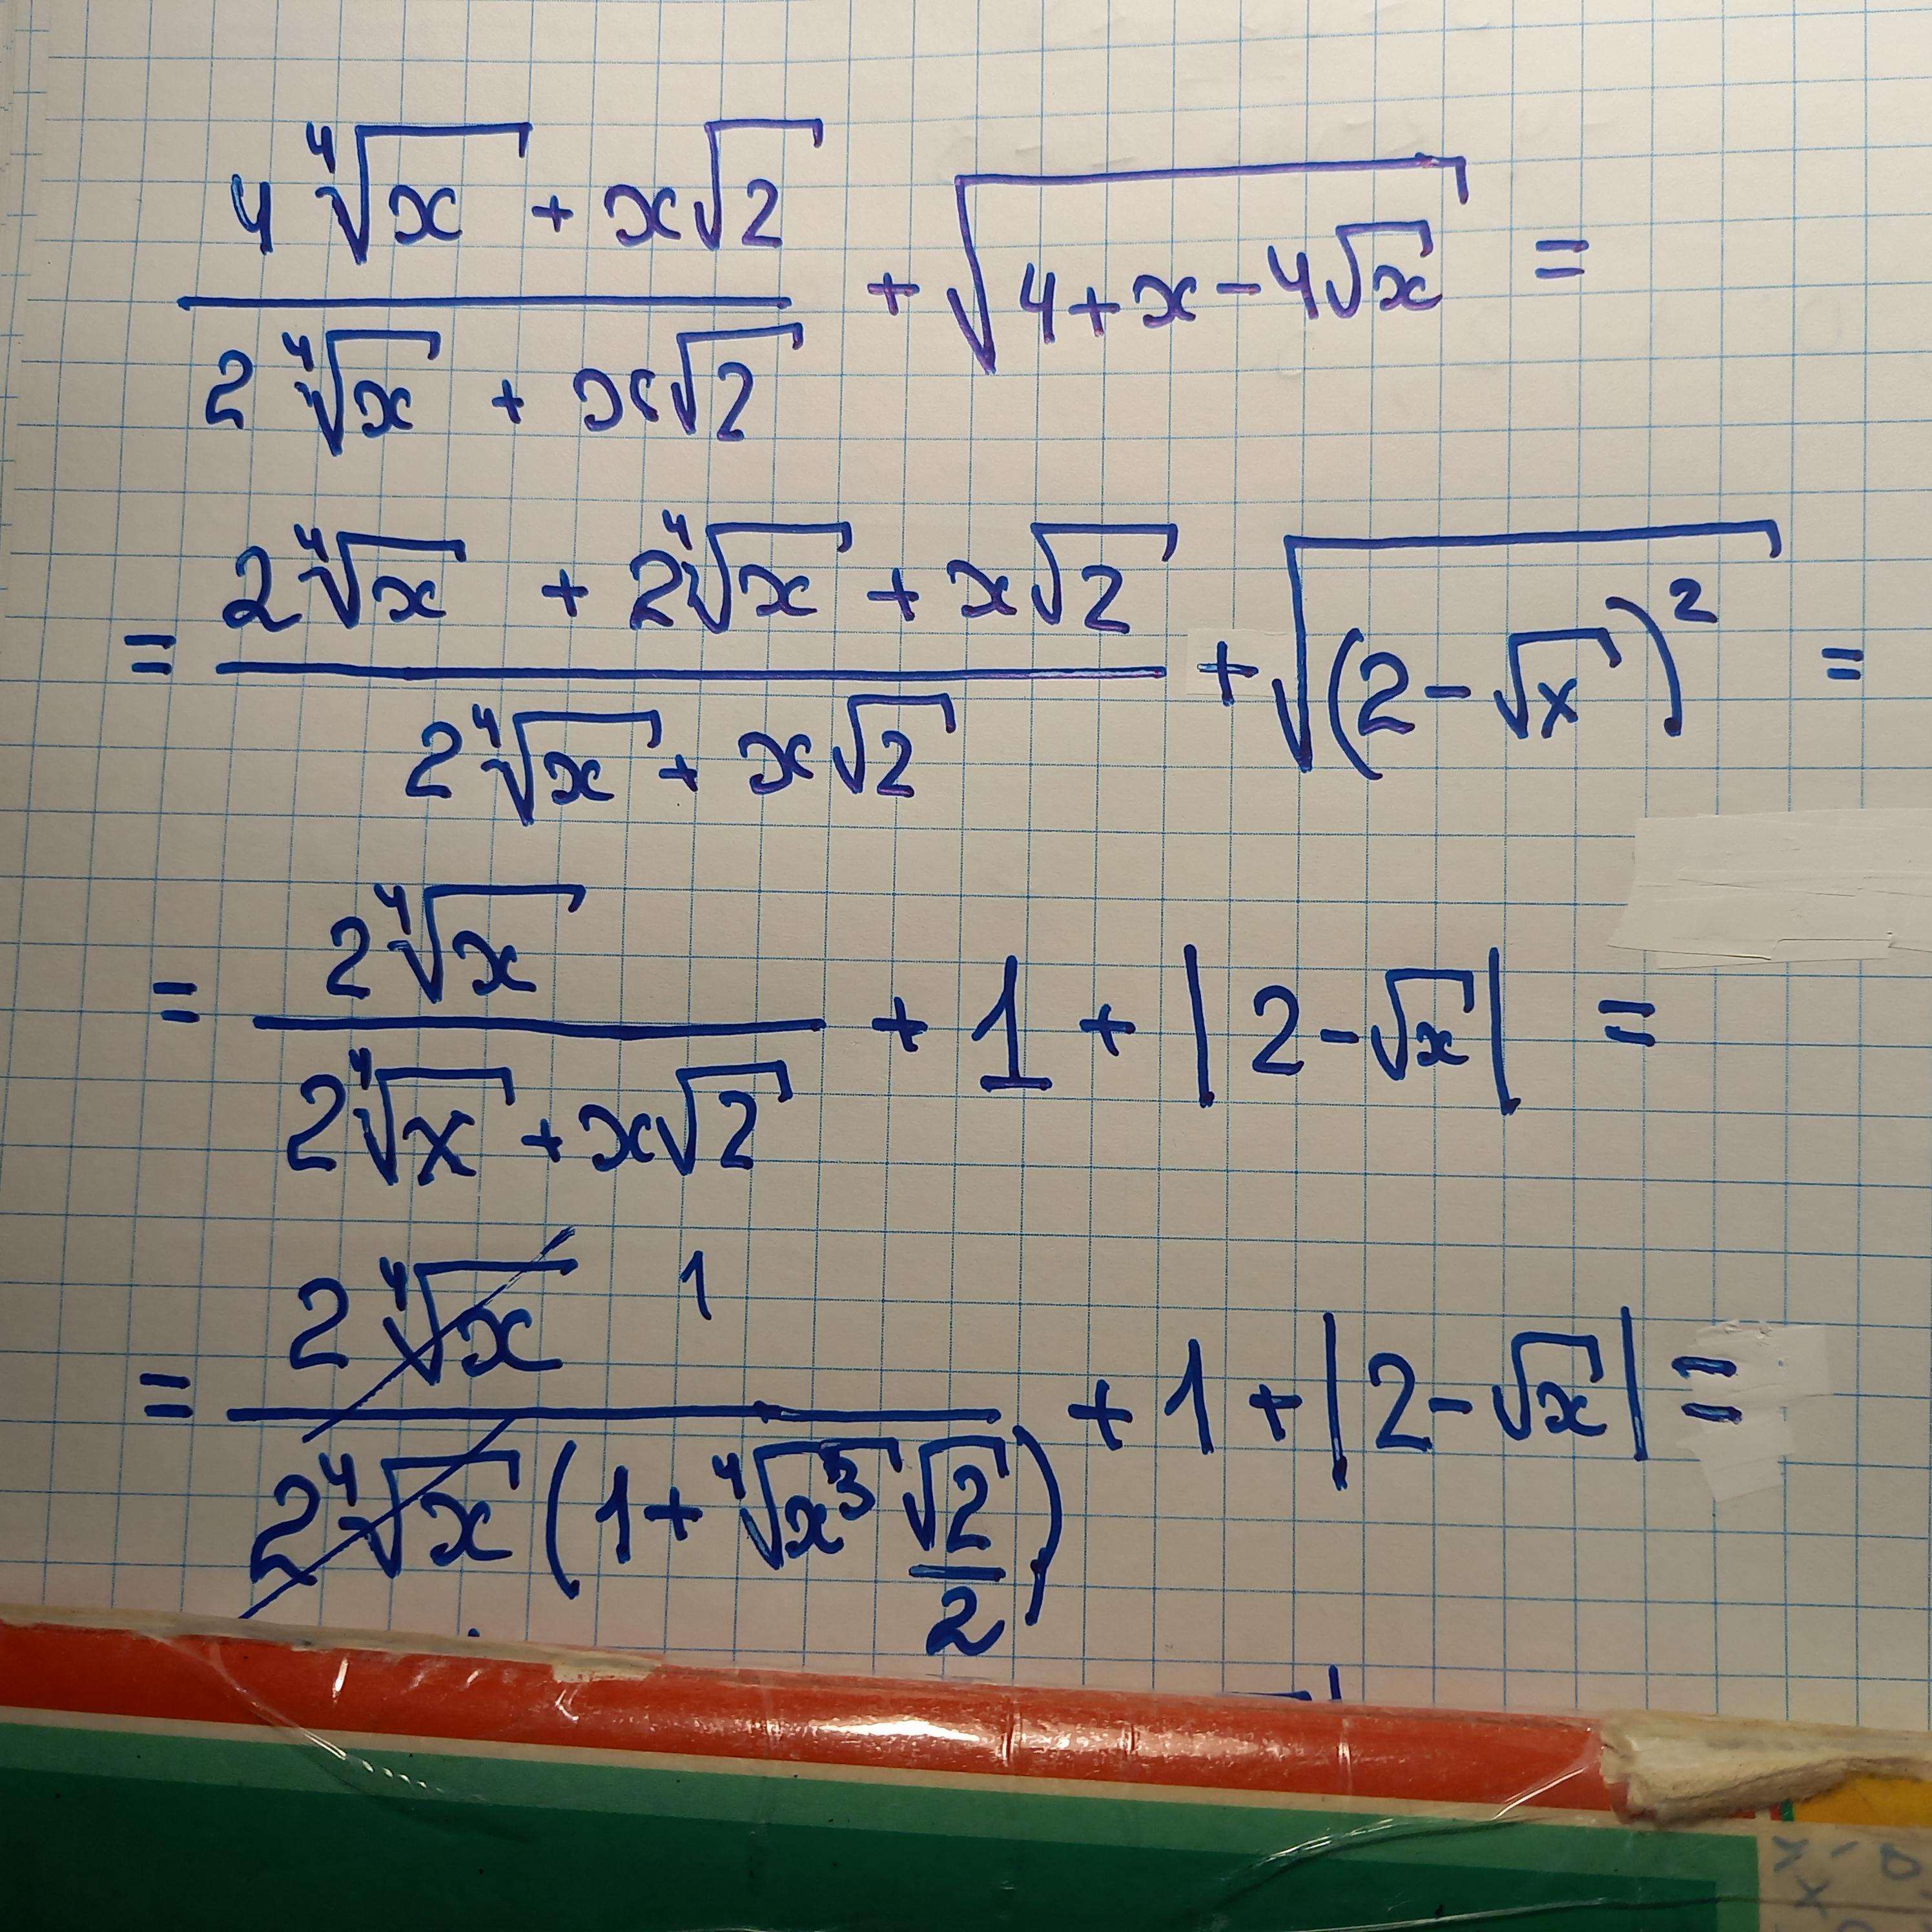 \frac{4\sqrt[4]{x} + x\sqrt{2}}{2\sqrt[4]{x} + x\sqrt{2}} + \sqrt{4 + x - 4\sqrt{x}} =
= \frac{2\sqrt[4]{x} + 2\sqrt[4]{x} + x\sqrt{2}}{2\sqrt[4]{x} + x\sqrt{2}} + \sqrt{(2 - \sqrt{x})^2} =
= \frac{2\sqrt[4]{x}}{2\sqrt[4]{x} + x\sqrt{2}} + 1 + |2 - \sqrt{x}| =
= \frac{2\sqrt[4]{x} \ 1}{2\sqrt[4]{x}(1 + \sqrt[4]{x^3}\frac{\sqrt{2}}{2})} + 1 + |2 - \sqrt{x}| =